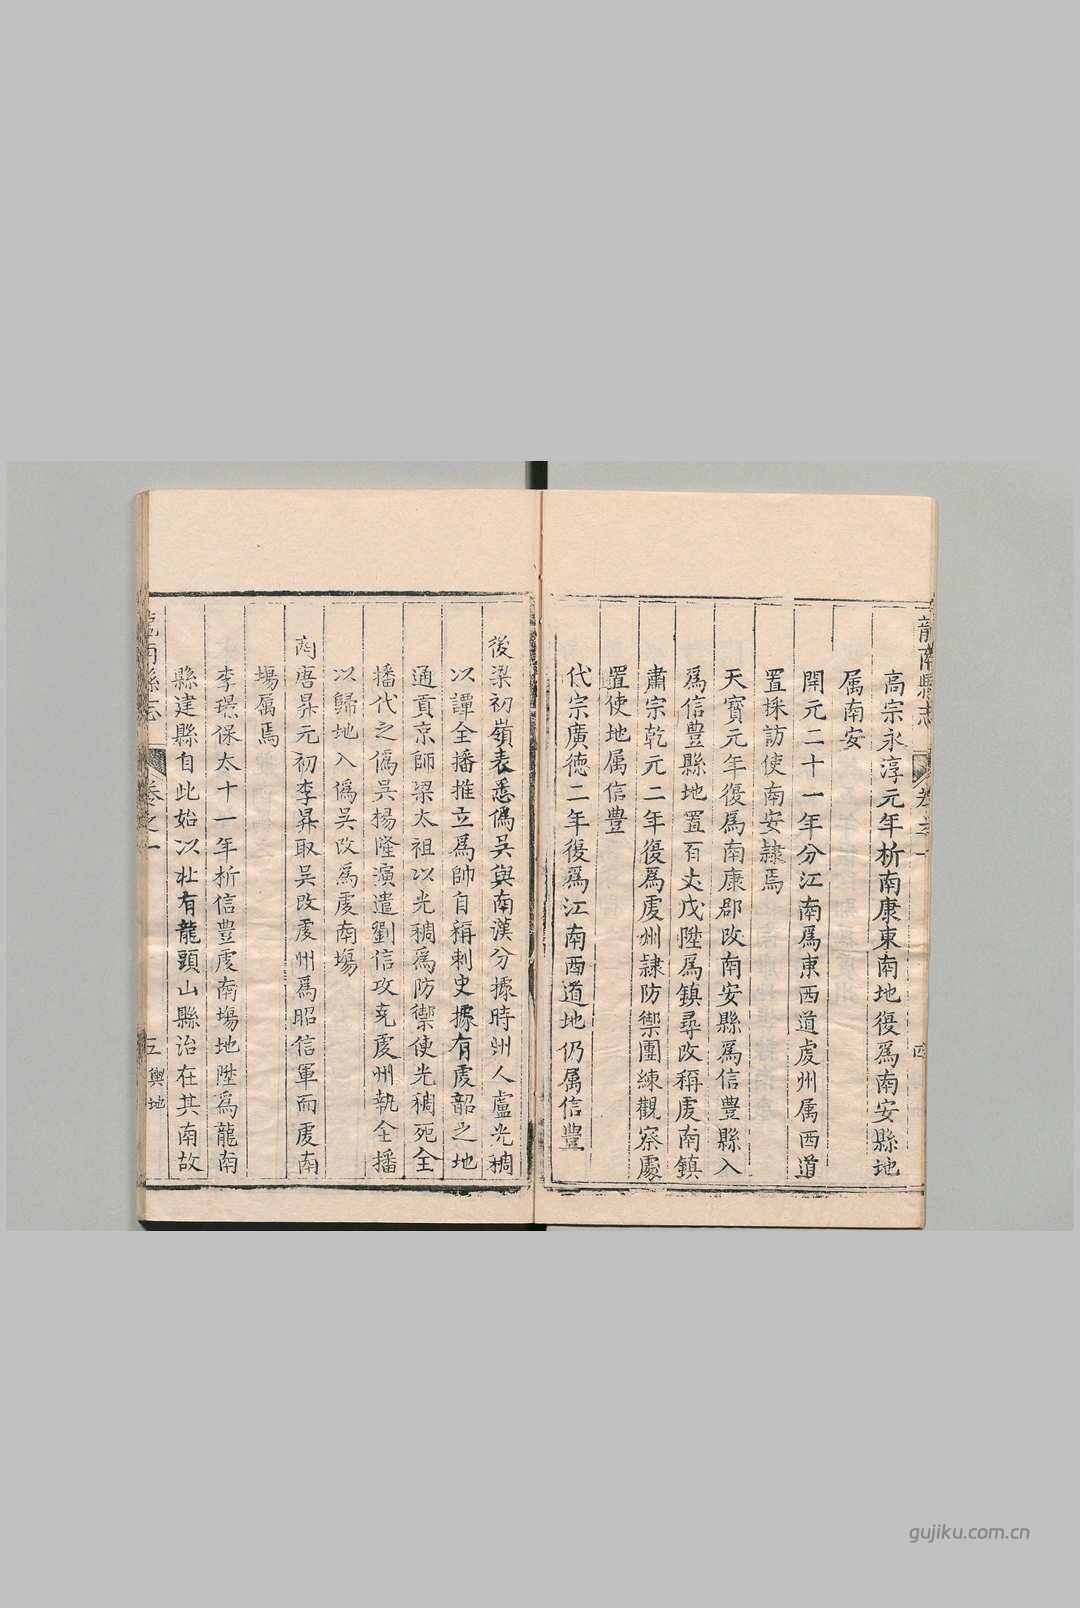 龍南縣志
卷之一
四
高宗永淳元年析南康東南地復爲南安縣地
属南安
開元二十一年分江南爲東西道虔州属西道
置採訪使南安隷焉
天寶元年復爲南康郡改南安縣爲信豊縣入
爲信豊縣地置百丈戍陞爲鎮尋改稱虔南鎮
肅宗乾元二年復爲虔州隷防禦團練觀察處
置使地属信豊
代宗廣德二年復爲江南西道地仍属信豊
後梁初嶺表悉僞吳與南漢分據時州人盧光稠
以譚全播推立爲帥自稱刺史據有虔韶之地
通貢京師梁太祖以光稠爲防禦使光稠死全
播代之僞吳楊隆演遣劉信攻克虔州執全播
以歸地入僞吳改爲虔南塲
南唐昇元初李昇取吳改虔州爲昭信軍而虔南
塲属焉
李璟保大十一年析信豊虔南塲地陞爲龍南
縣建縣自此始以北有龍頭山縣治在其南故
龍南縣志
卷之一
五
輿地
gujiku.com.cn